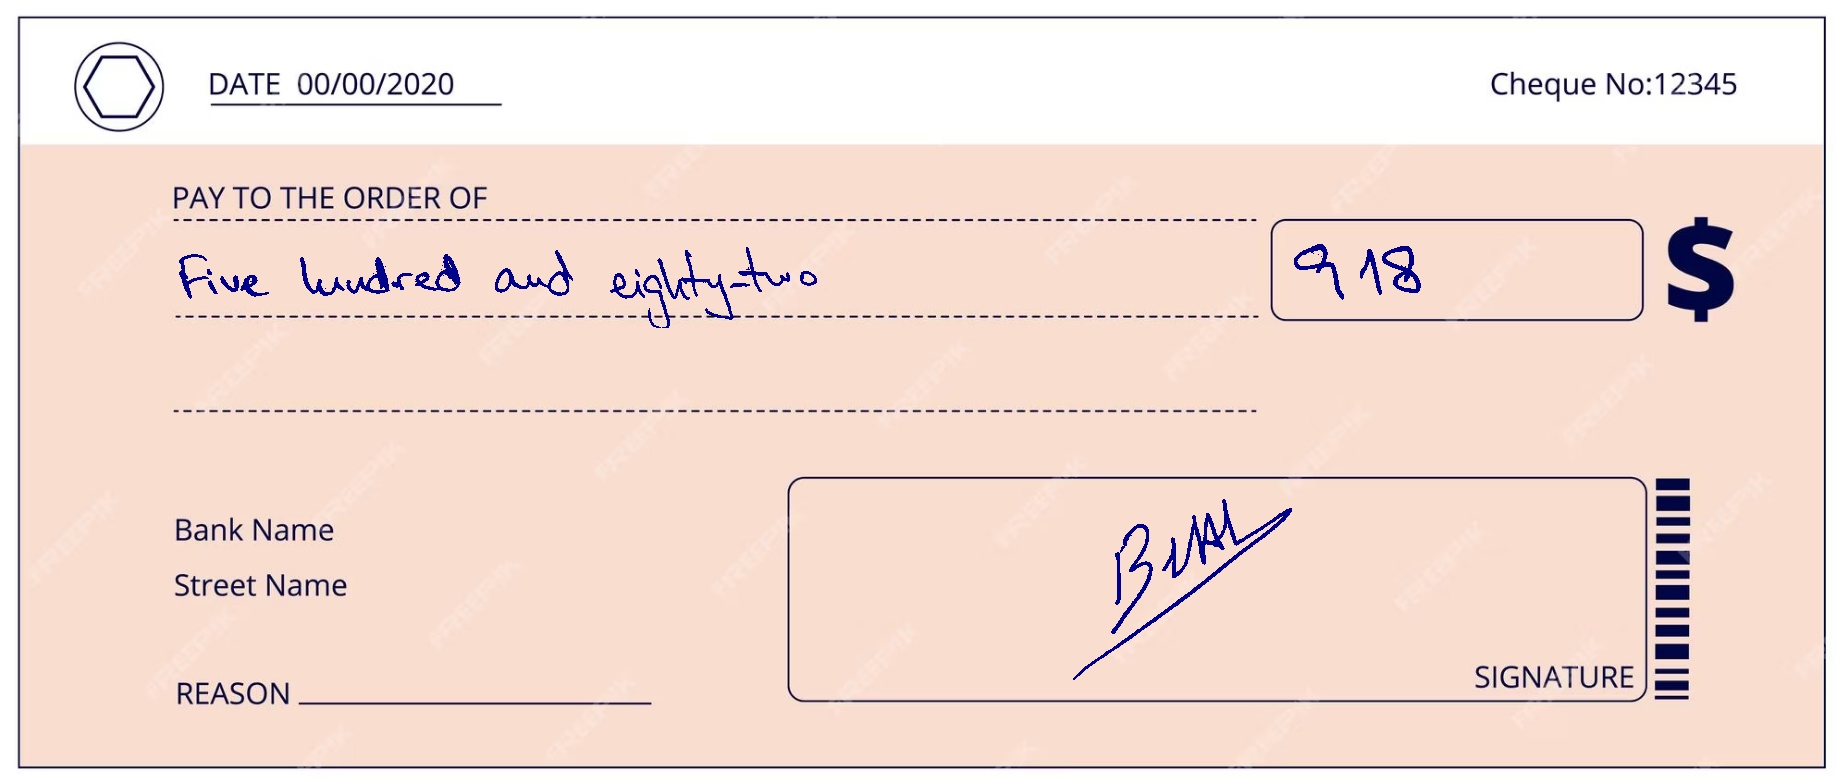 DATE 00/00/2020
Cheque No:12345
PAY TO THE ORDER OF
Five hundred and eighty-two
918
$
Bank Name
Street Name
REASON
SIGNATURE